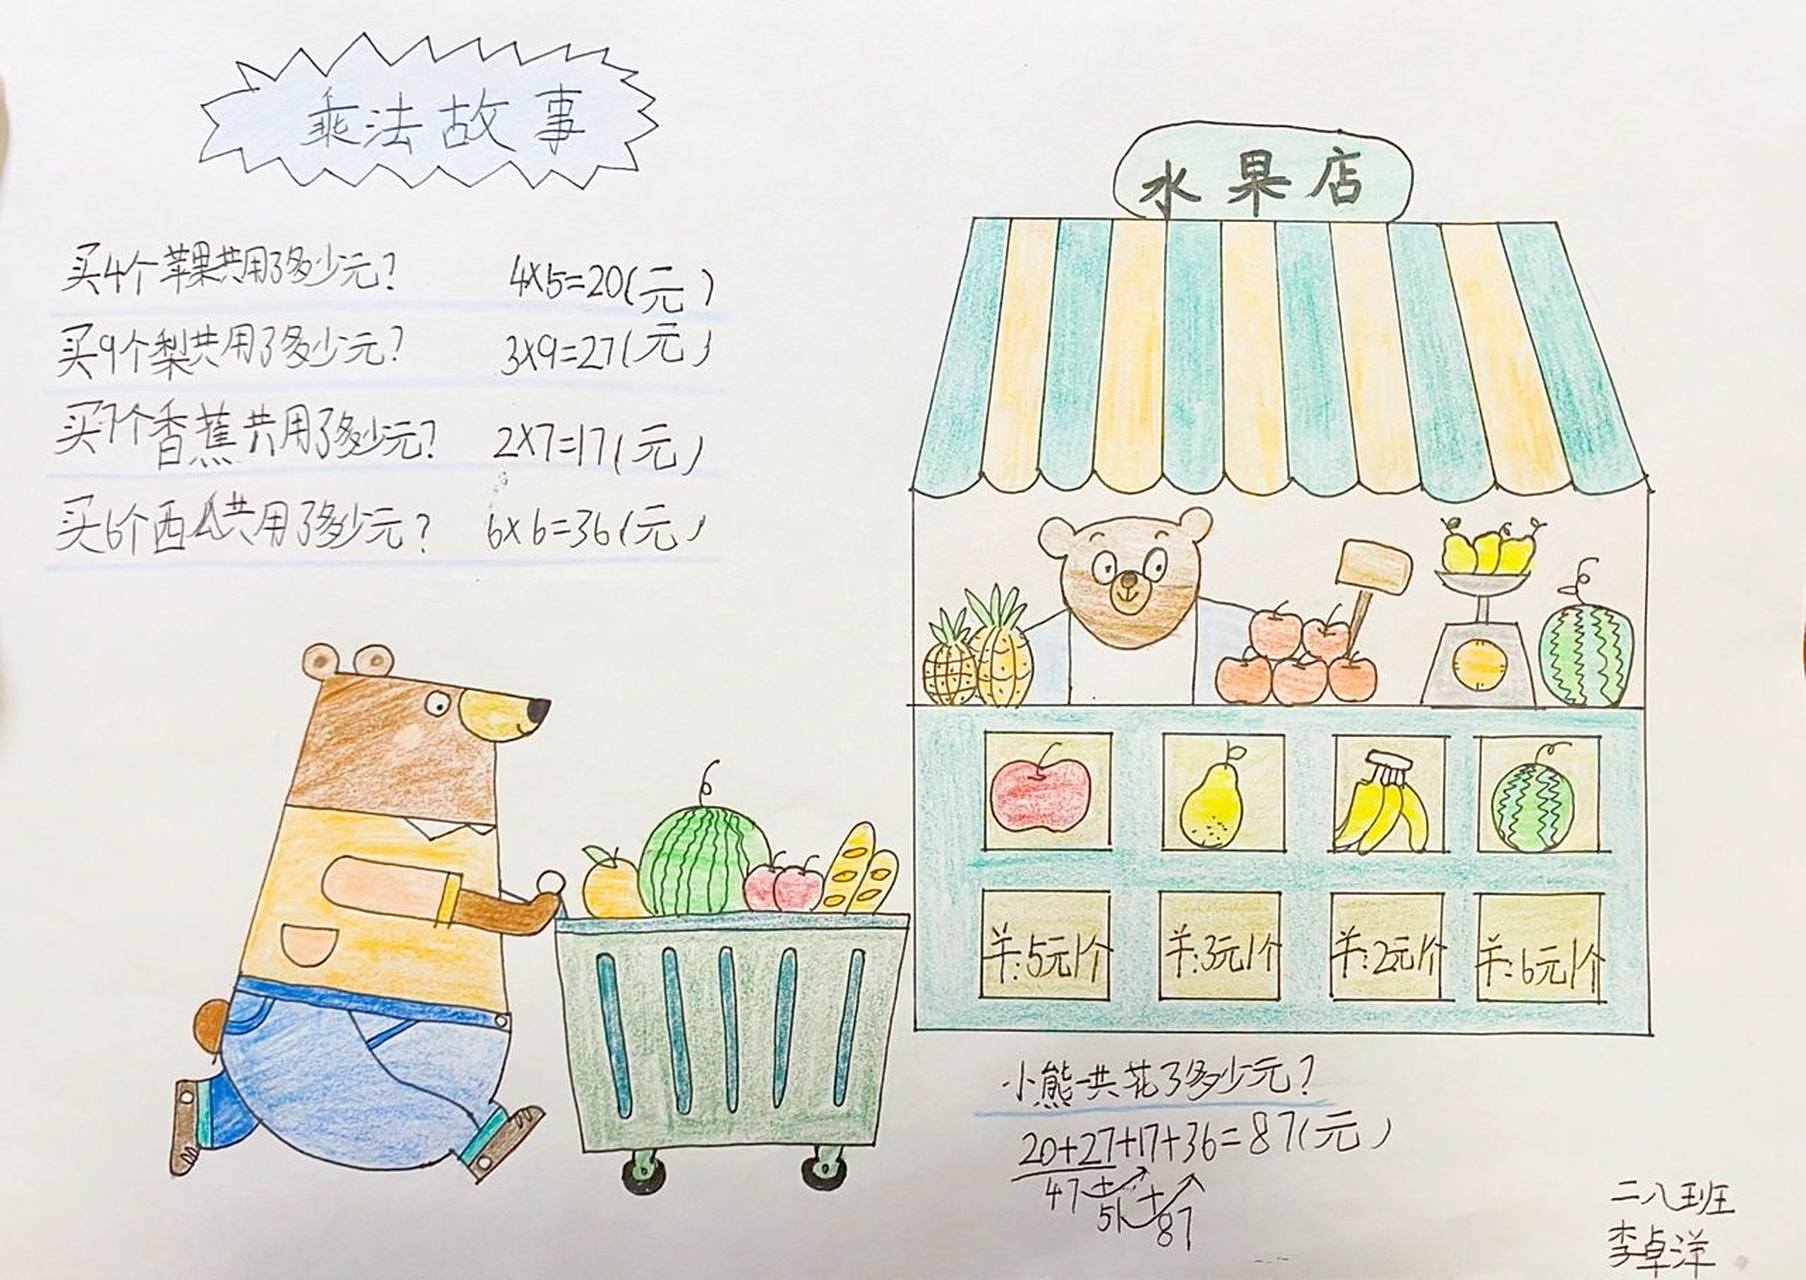 乘法故事
水果店
买4个苹果共用了多少元? 4×5=20(元)
买9个梨共用了多少元? 3×9=27(元)
买7个香蕉共用了多少元? 2×7=17(元)
买6个西瓜共用了多少元? 6×6=36(元)
羊:5元1个 羊:3元1个 羊:2元1个 羊:6元1个
小熊一共花了多少元?
20+27+17+36=87(元)
47 +
51 +
87
二八班
李卓洋